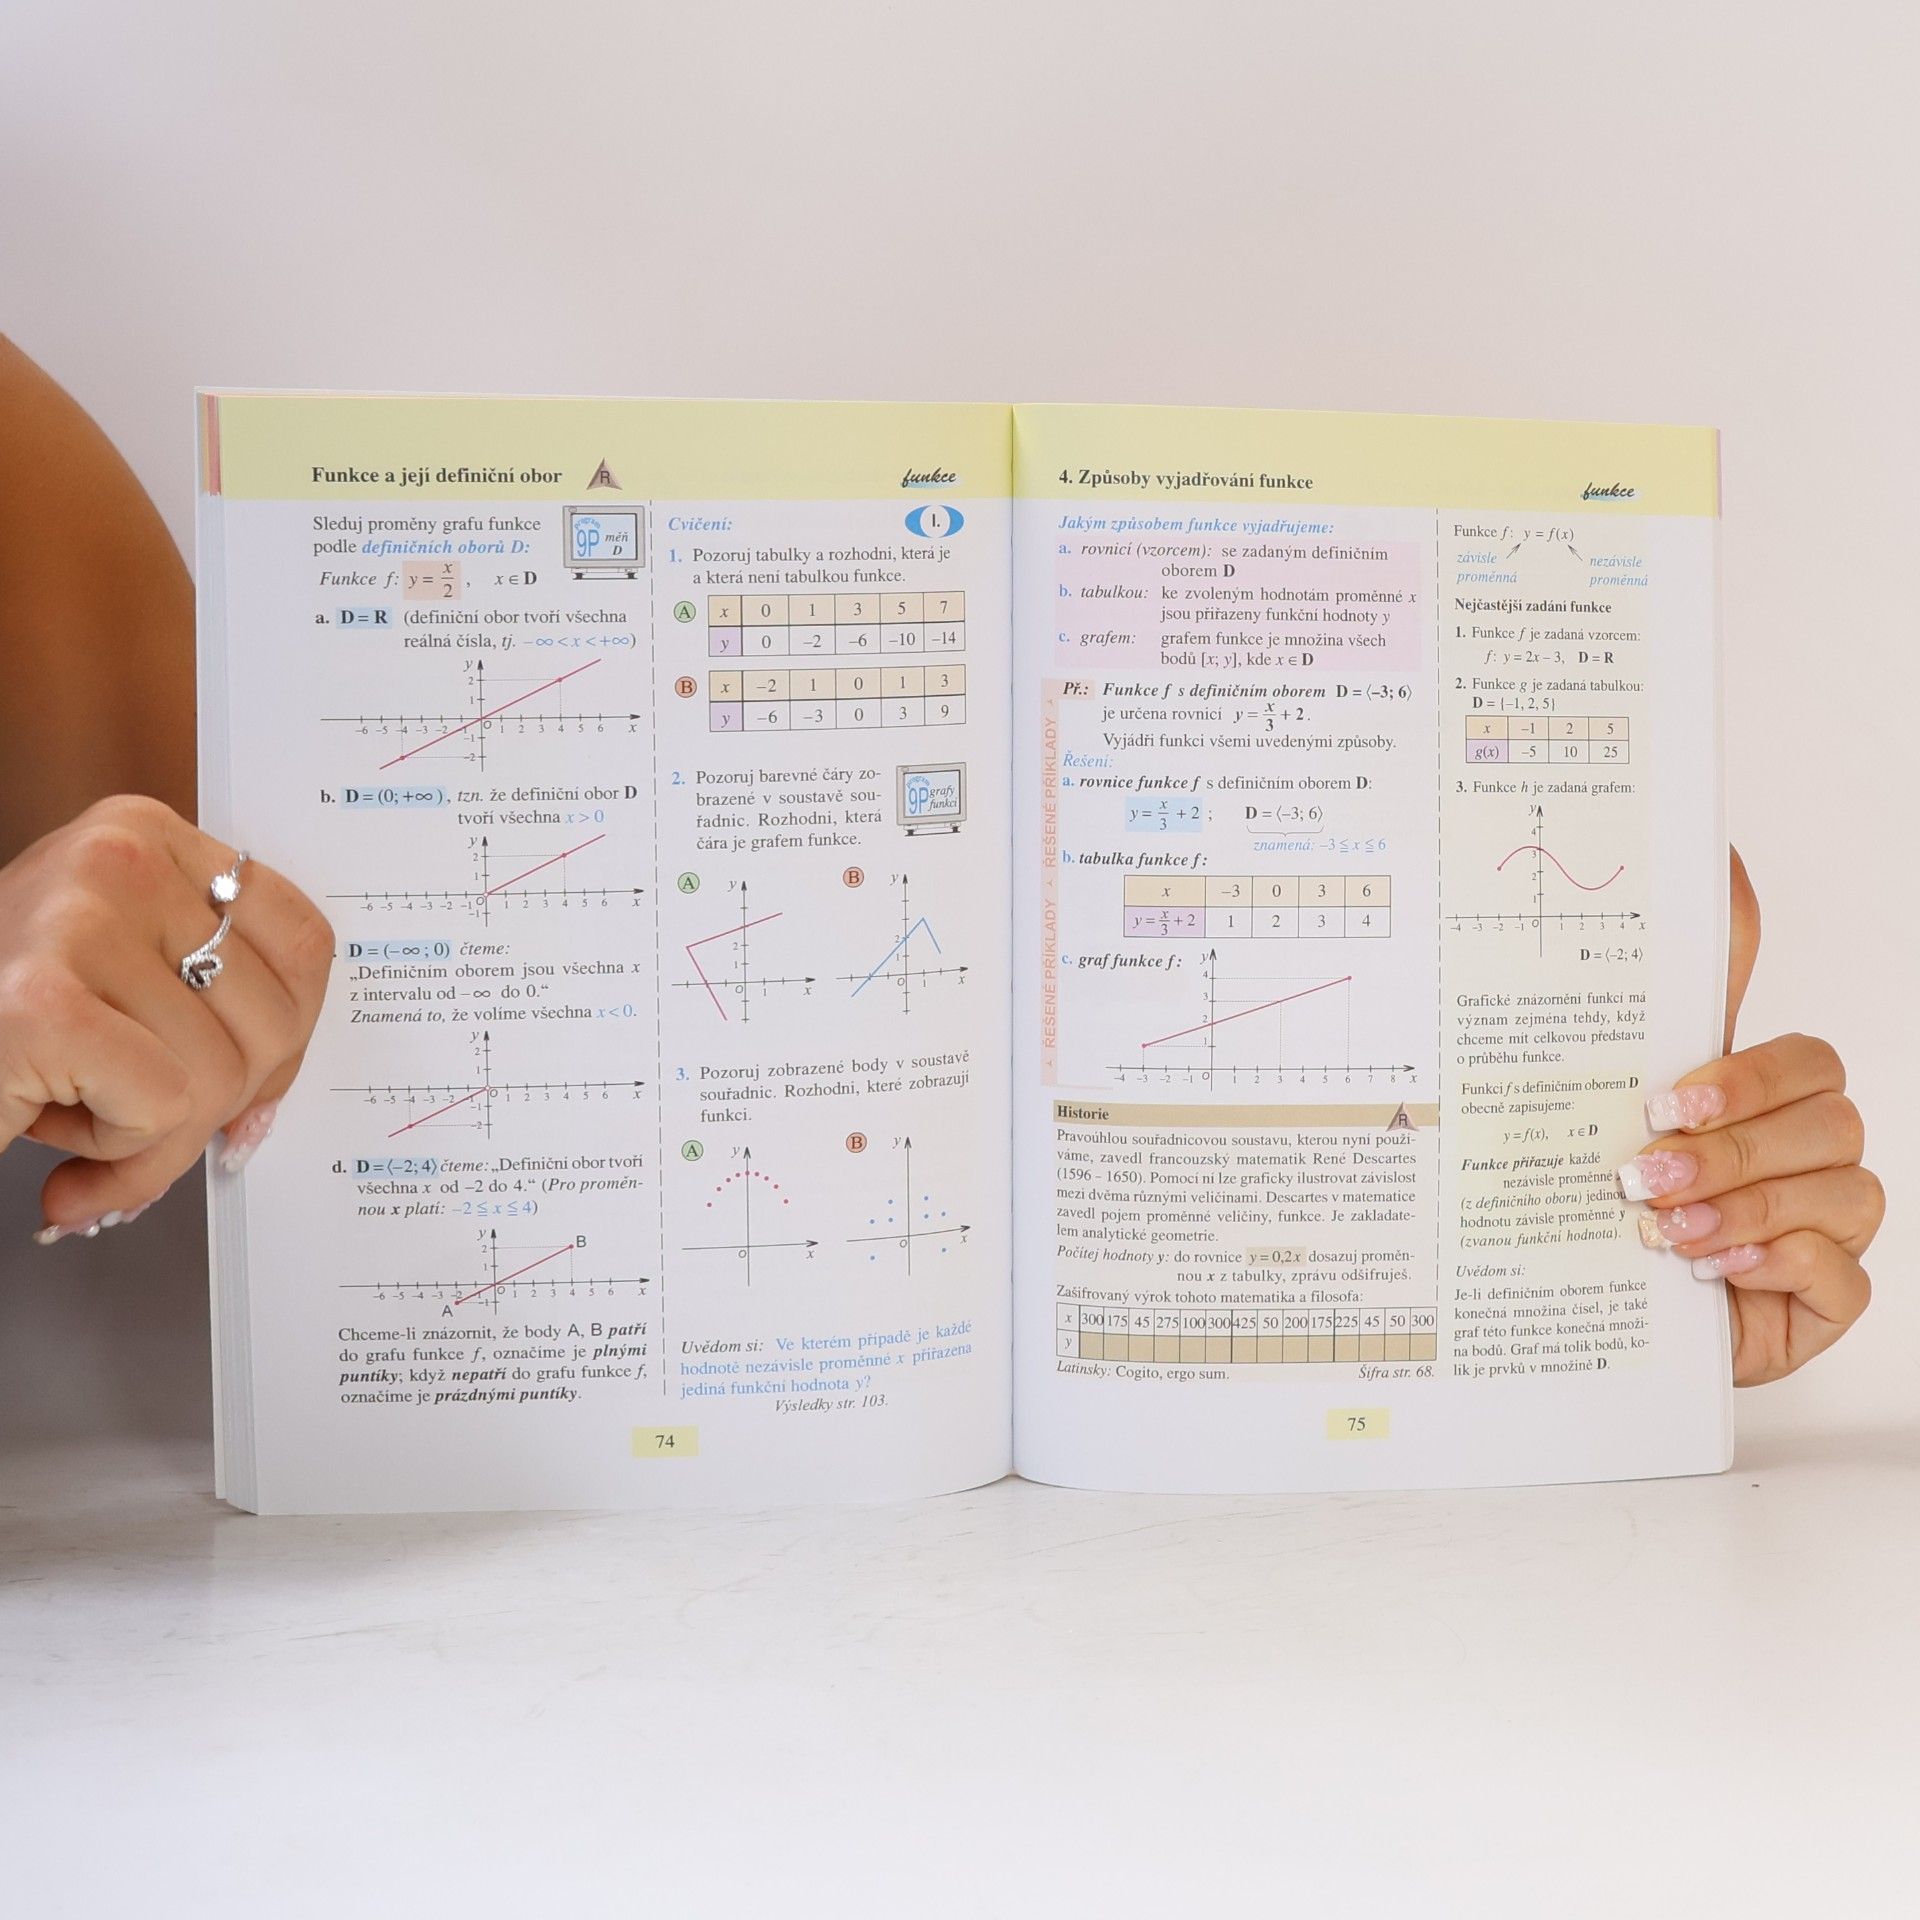 Funkce a její definiční obor
R
funkce
Sleduj proměny grafu funkce
podle definičních oborů D:
Funkce f: y = x/2 , x ∈ D
program
9P měň
D
a. D = R (definiční obor tvoří všechna
reálná čísla, tj. −∞ < x < +∞)
y
2
1
-6 -5 -4 -3 -2 -1 O 1 2 3 4 5 6 x
-1
-2
b. D = (0; +∞), tzn. že definiční obor D
tvoří všechna x > 0
y
2
1
-6 -5 -4 -3 -2 -1 O 1 2 3 4 5 6 x
-1
D = (−∞; 0) čteme:
„Definičním oborem jsou všechna x
z intervalu od −∞ do 0.“
Znamená to, že volíme všechna x < 0.
y
2
1
-6 -5 -4 -3 -2 O 1 2 3 4 5 6 x
-1
-2
d. D = ⟨−2; 4⟩ čteme: „Definiční obor tvoří
všechna x od −2 do 4.“ (Pro proměn-
nou x platí: −2 ≦ x ≦ 4)
y
2
B
1
-6 -5 -4 -3 -2 O 1 2 3 4 5 6 x
A -1
Chceme-li znázornit, že body A, B patří
do grafu funkce f, označíme je plnými
puntíky; když nepatří do grafu funkce f,
označíme je prázdnými puntíky.
Cvičení:
I.
1. Pozoruj tabulky a rozhodni, která je
a která není tabulkou funkce.
A x 0 1 3 5 7
y 0 −2 −6 −10 −14
B x −2 1 0 1 3
y −6 −3 0 3 9
2. Pozoruj barevné čáry zo-
brazené v soustavě sou-
řadnic. Rozhodni, která
čára je grafem funkce.
program
9P grafy
funkcí
A y
2
1
O 1 x
B y
2
1
O 1 x
3. Pozoruj zobrazené body v soustavě
souřadnic. Rozhodni, které zobrazují
funkci.
A y
O x
B y
O x
Uvědom si: Ve kterém případě je každé
hodnotě nezávisle proměnné x přiřazena
jediná funkční hodnota y?
Výsledky str. 103.
74
4. Způsoby vyjadřování funkce
funkce
Jakým způsobem funkce vyjadřujeme:
a. rovnicí (vzorcem): se zadaným definičním
oborem D
b. tabulkou: ke zvoleným hodnotám proměnné x
jsou přiřazeny funkční hodnoty y
c. grafem: grafem funkce je množina všech
bodů [x; y], kde x ∈ D
ŘEŠENÉ PŘÍKLADY ŘEŠENÉ PŘÍKLADY
Př.: Funkce f s definičním oborem D = ⟨−3; 6⟩
je určena rovnicí y = x/3 + 2.
Vyjádři funkci všemi uvedenými způsoby.
Řešení:
a. rovnice funkce f s definičním oborem D:
y = x/3 + 2 ; D = ⟨−3; 6⟩
znamená: −3 ≦ x ≦ 6
b. tabulka funkce f:
x −3 0 3 6
y = x/3 + 2 1 2 3 4
c. graf funkce f: y
4
3
2
1
-4 -3 -2 -1 O 1 2 3 4 5 6 7 8 x
Historie
R
Pravoúhlou souřadnicovou soustavu, kterou nyní použí-
váme, zavedl francouzský matematik René Descartes
(1596 - 1650). Pomocí ní lze graficky ilustrovat závislost
mezi dvěma různými veličinami. Descartes v matematice
zavedl pojem proměnné veličiny, funkce. Je zakladate-
lem analytické geometrie.
Počítej hodnoty y: do rovnice y = 0,2x dosazuj proměn-
nou x z tabulky, zprávu odšifruješ.
Zašifrovaný výrok tohoto matematika a filosofa:
x 300 175 45 275 100 300 425 50 200 175 225 45 50 300
y
Latinsky: Cogito, ergo sum. Šifra str. 68.
75
Funkce f: y = f(x)
závisle nezávisle
proměnná proměnná
Nejčastější zadání funkce
1. Funkce f je zadaná vzorcem:
f: y = 2x − 3, D = R
2. Funkce g je zadaná tabulkou:
D = {−1, 2, 5}
x −1 2 5
g(x) −5 10 25
3. Funkce h je zadaná grafem:
y
4
3
2
1
-4 -3 -2 -1 O 1 2 3 4 x
D = ⟨−2; 4⟩
Grafické znázornění funkcí má
význam zejména tehdy, když
chceme mít celkovou představu
o průběhu funkce.
Funkci f s definičním oborem D
obecně zapisujeme:
y = f(x), x ∈ D
Funkce přiřazuje každé
nezávisle proměnné
(z definičního oboru) jedinou
hodnotu závisle proměnné y
(zvanou funkční hodnota).
Uvědom si:
Je-li definičním oborem funkce
konečná množina čísel, je také
graf této funkce konečná množi-
na bodů. Graf má tolik bodů, ko-
lik je prvků v množině D.